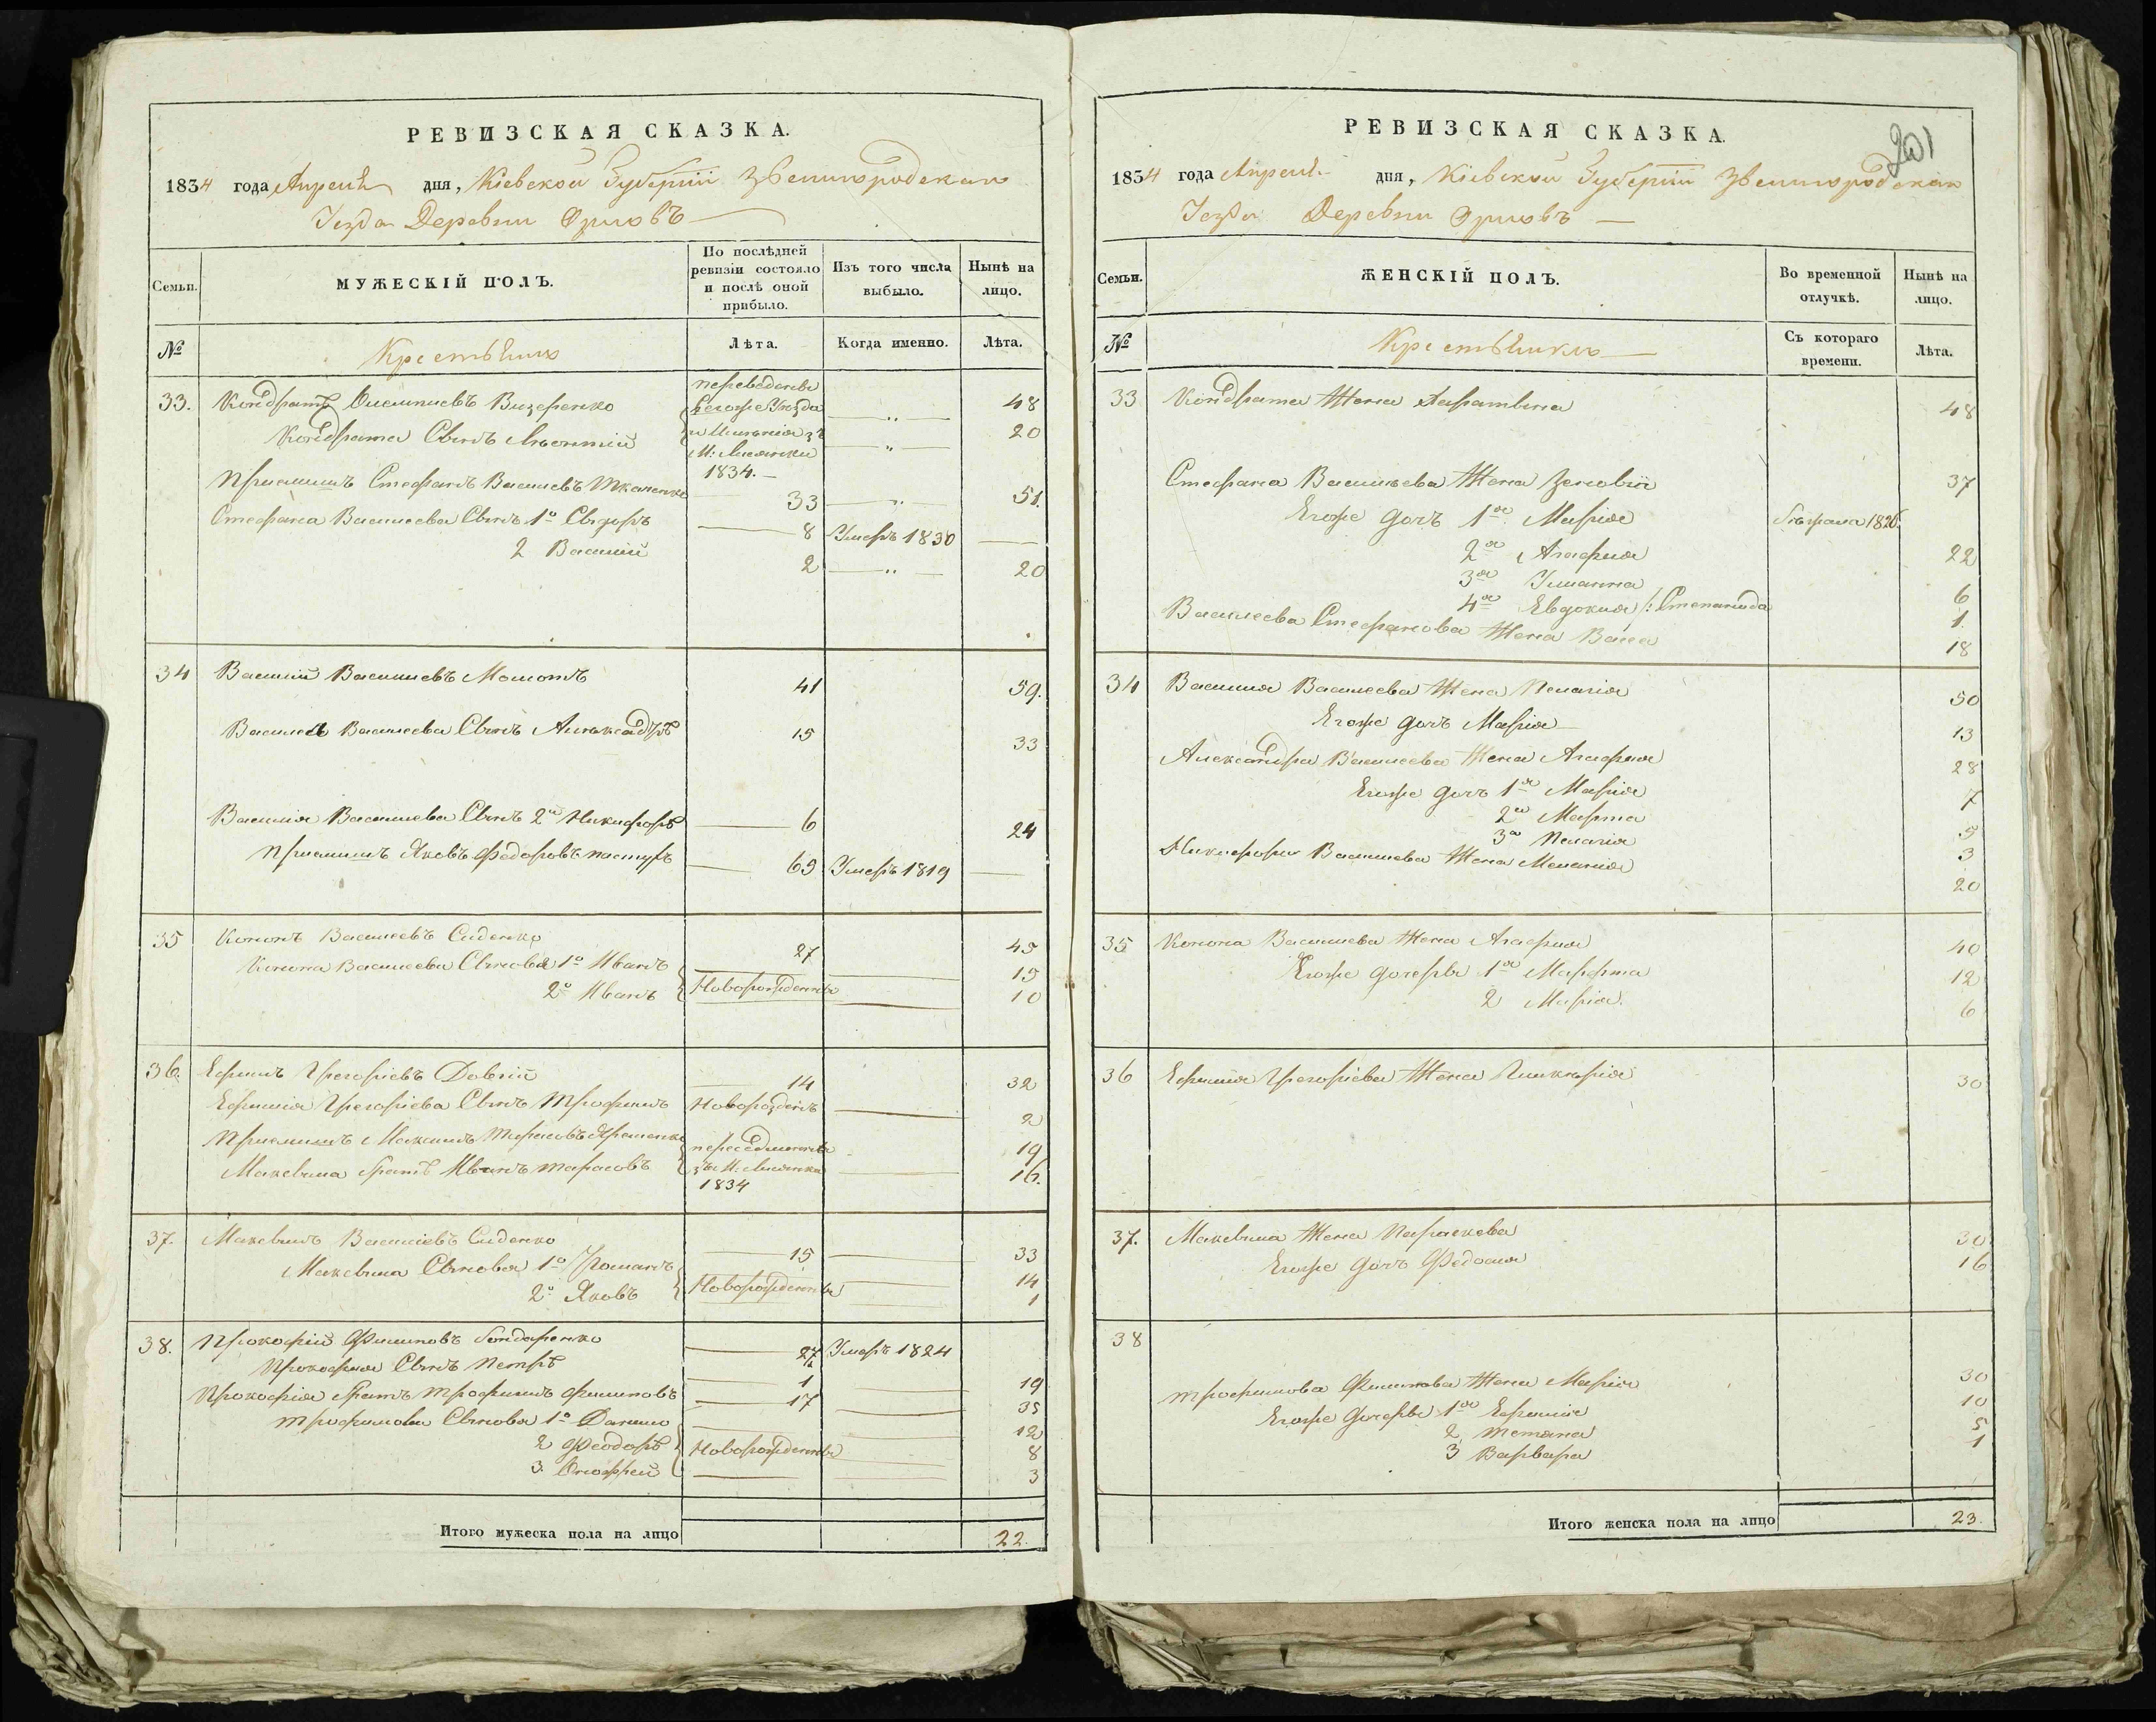 РЕВИЗСКАЯ СКАЗКА.
1834 года Апреля дня, Кіевской Губерніи Звенигородскаго
Уезда Деревни Орловъ
Семьи.
МУЖЕСКІЙ ПОЛЪ.
По послѣдней ревизіи состояло и послѣ оной прибыло.
Изъ того числа выбыло.
Нынѣ на лицо.
№
Крестьянъ
Лѣта.
Когда именно.
Лѣта.
33. Кондратъ Визеренко 48
Кондрата Сынъ Леонтій 20
переведены
1834.
Приемышъ Стефанъ Василевъ Ткаченко 33 51.
Стефана Василева Сынъ 1й Сыдоръ 8 Умеръ 1830
2 Василій 2 20
34 Василій Василіевъ Момотъ 41 59.
Василія Василева Сынъ Александръ 15 33
Василия Василиева Сынъ 2й Никифоръ 6 24
Приемышъ Яковъ Федоровъ пастухъ 69 Умеръ 1819
35 Кононъ Василевъ Сиденко 27 45
Конона Василева Сыновья 1й Иванъ 15
2й Иванъ Новорожденны 10
36. Ефимъ Григоріевъ Довгій 14 32
Ефимія Григоріева Сынъ Трофимъ Новорожденъ 2
Приемышъ Максимъ Тарасовъ 19
Максыма братъ Иванъ Тарасовъ 16.
1834
37. Максымъ Василіевъ Сиденко 15 33
Максыма Сыновья 1й Романъ 14
2й Яковъ Новорожденны 1
38. Прокофій Филиповъ Бондаренко 27 Умеръ 1824
Прокофія Сынъ Петръ 1 19
Прокофія братъ Трофимъ Филиповъ 17 35
Трофимова Сыновя 1й Данило 12
2 Феодоръ Новорожденны 8
3. Онофрей 3
Итого мужеска пола на лицо 22.
РЕВИЗСКАЯ СКАЗКА.
201
1834 года Апреля дня, Кіевской Губерніи Звенигородскаго
Уезда Деревни Орловъ
Семьи.
ЖЕНСКІЙ ПОЛЪ.
Во временной отлучкѣ.
Нынѣ на лицо.
№
Съ котораго времени.
Лѣта.
33 Кондрата Жена 48
Стефана Васильева Жена Зеновія 37
Егоже дочъ 1ая Марія
2ая Агафия 22
3ая Ульянна 6
4ая Евдокия /: Степанида 1.
Василева Стефанова Жена Васса 18
34 Василия Василева Жена Пелагія 50
Егоже дочъ Марія 13
Александра Василева Жена Агафия 28
Егоже дочъ 1ая Марія 7
2ая Марта 5
3ая Пелагія 3
Никифора Василиева Жена Меланія 20
35 Конона Василиева Жена Агафия 40
Егоже дочеры 1ая Марфта 12
2 Марія. 6
36 Ефимія Григоріева Жена Гликерія 30
37. Максыма Жена Параскева 30
Егоже дочъ Федосия 16
38
Трофимова Филипова Жена Марія 30
Егоже дочеры 1ая Ефимія 10
2 Тетяна 5
3 Варвара 1
Итого женска пола на лицо 23.